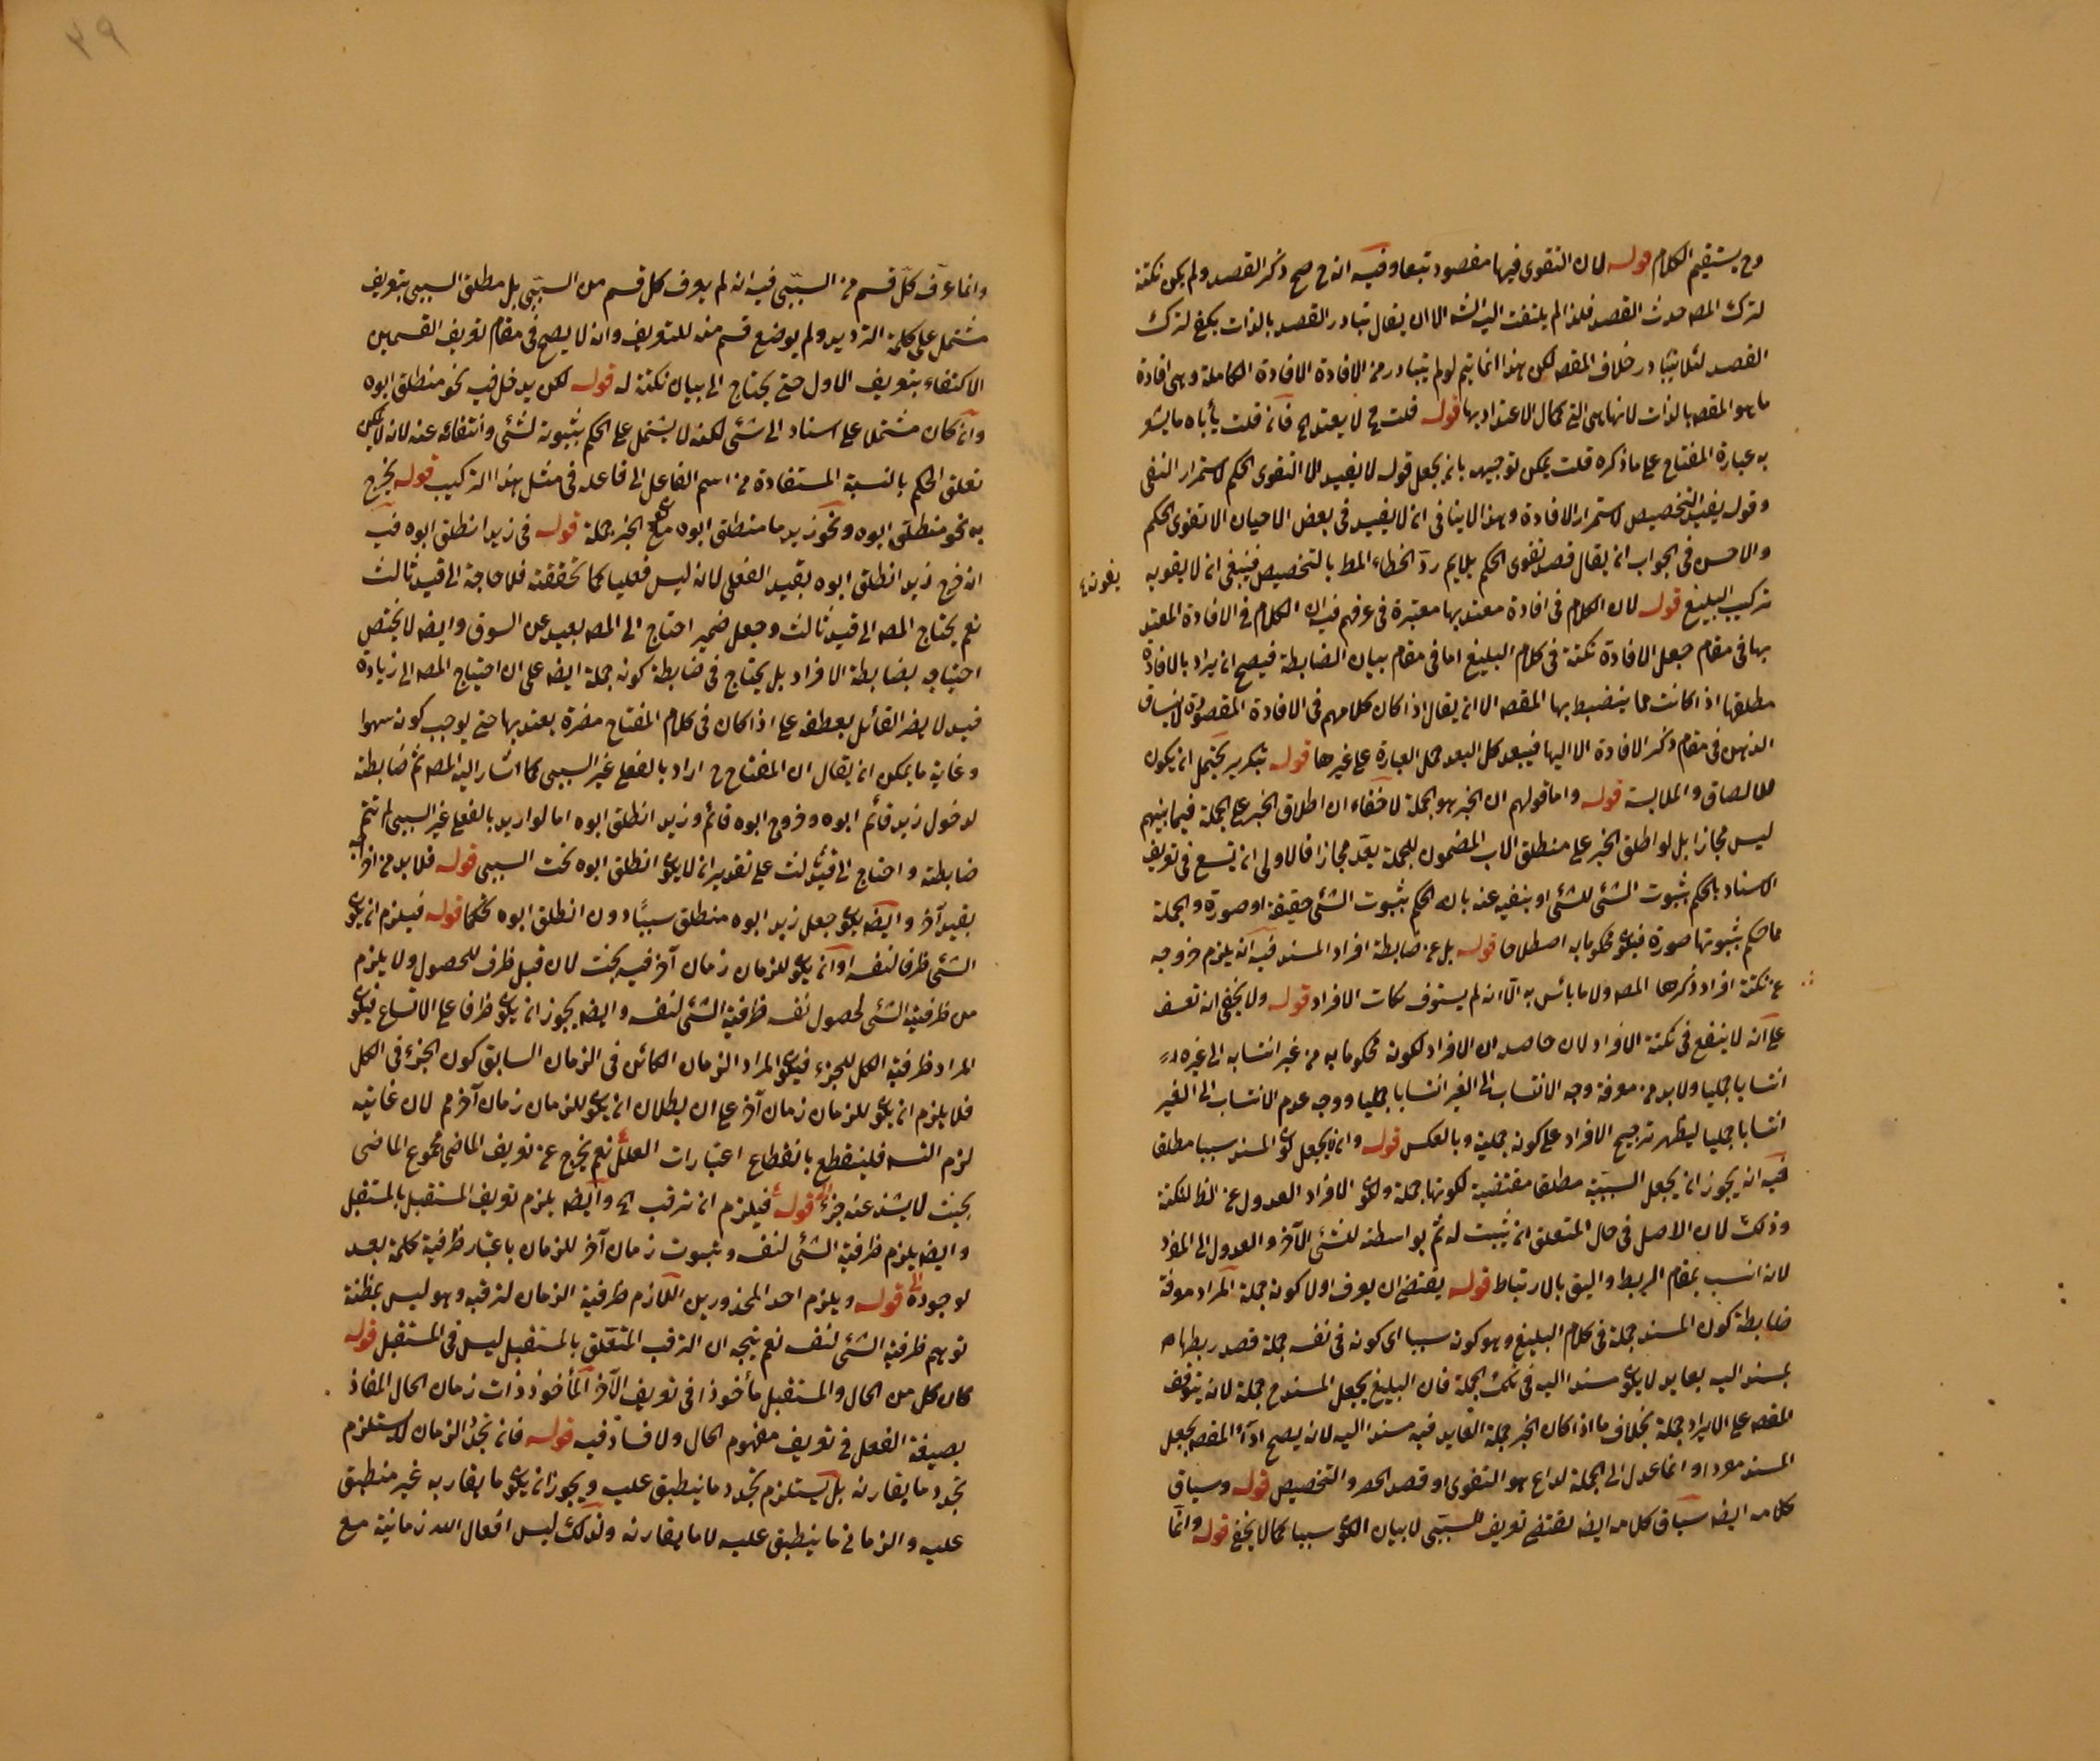 وح يستقيم الكلام قوله لان التقوى فيها مقصود تبعا وفيه انه ح صح ذكر القصد ولم يكن نكتة
لترك المصه حديث القصد فلذا لم يلتفت اليه الشه الا ان يقال تبادر القصد بالذات يكفى لترك
القصد لئلا يتبادر خلاف المقصه لكن هذا انما يتم لو لم يتبادر من الافادة الافادة الكاملة وهى افادة
ما هو المقصه بالذات لانها هى التى كمال الاعتداد بها قوله قلت ح لا يعتد الخ فان قلت يأباه ما يشعر
به عبارة المفتاح على ما ذكره قلت يمكن توجيهه بان يجعل قوله لا يفيد الا التقوى الحكم لاستمرار النفى
وقوله يفيد التخصيص لاستمرار الافادة وهذا لا ينافى ان لا يفيد فى بعض الاحيان الا تقوى الحكم
والاحسن فى الجواب ان يقال قصد تقوى الحكم يلايم ردّ الخطاء المط بالتخصيص فينبغى ان لا يفوته
يفوته
تركيب البليغ قوله لان الكلام فى افادة معتد بها معتبرة فى عرفهم فيه ان الكلام فى الافادة المعتد
بها فى مقام جعل الافادة نكتة فى كلام البليغ اما فى مقام بيان الضابطة فيصح ان يراد بالافادة
مطلقها اذا كانت مما ينضبط بها المقصه الا ان يقال اذا كان كلامهم فى الافادة المقصودة لا ينساق
الذهن فى مقام ذكر الافادة الا اليها فيبعد كل البعد حمل العبارة على غيرها قوله بتكرير يحتمل ان يكون
للالصاق والملابسة قوله واما قولهم ان الخبر هو الجملة لا خفاء ان اطلاق الخبر على الجملة فيما بينهم
ليس مجازا بل لو اطلق الخبر على منطلق الاب المضمون للجملة يعدّ مجازا فالاولى ان يتسع فى تعريف
الاسناد بالحكم بثبوت الشئ للشئ او بنفيه عنه بان الحكم بثبوت الشئ حقيقة او صورة والجملة
مما حكم بثبوتها صورة فيكون محكوما به اصطلاحا قوله بل عن ضابطة افراد المسند فيه انه يلزم خروجه
عن نكتة افراد ذكرها المصه ولا ما بائس به الّا انه لم يستوف نكات الافراد قوله ولا يخفى انه تعسف
على انه لا ينفع فى نكتة الافراد لان حاصله ان الافراد لكونه محكوما به من غير انتسابه الى غيره
انتسابا جمليا ولا بد من معرفة وجه الانتساب الى الغير انتسابا جمليا ووجه عدم الانتساب الى الغير
انتسابا جمليا ليظهر ترجيح الافراد على كونه جملية وبالعكس قوله وان يجعل كون المسند سببيا مطلقا
فيه انه يجوز ان يجعل السببية مطلقا مقتضية لكونها جملة ولكون الافراد العدول عن الظ لنكتة
وذلك لان الاصل فى حال المتعلق ان يثبت له ثم بواسطته للشئ الآخر والعدول الى المفرد
لانه انسب بمقام الربط واليق بالارتباط قوله يقتضى ان يعرف اولا كونه جملة المراد معرفة
ضابطة كون المسند جملة فى كلام البليغ وهو كونه سببيا اى كونه فى نفسه جملة قصد ربطها
بمسند اليه بعايد لا يكون مسندا اليه فى تلك الجملة فان البليغ يجعل المسند ح جملة لانه يتوقف
المقصه على الايراد جملة بخلاف ما اذا كان الخبر جملة العايد فيه مسندا اليه لانه يصح اداء المقصه بجعل
المسند مفردا وانما عدل الى الجملة لداع هو التقوى او قصد الحصر والتخصيص قوله وسياق
كلامه ايضه سياق كلامه ايضه يقتضى تعريف السببى لا بيان الكون سببيا كما لا يخفى قوله وانما
٤٩
وانما عرّف كل قسم من السببى فيه انه لم يعرف كل قسم من السببى بل مطلق السببى بتعريف
مشتمل على كلمة الترديد ولم يوضع قسم منه للتعريف وانه لا يصح فى مقام تعريف القسمين
الاكتفاء بتعريف الاول حتى يحتاج الى بيان نكتة له قوله لكن يدخل فيه نحو منطلق ابوه
وان كان مشتملا على اسناد الى شئ لكنه لا يشتمل على الحكم بثبوته لشئ وانتفائه عنه لانه لا يمكن
تعلق الحكم بالنسبة المستفادة من اسم الفاعل الى فاعله فى مثل هذا التركيب قوله يخرج
به نحو منطلق ابوه ونحو زيد ما منطلق ابوه مع الخبر جملة قوله فى زيد انطلق ابوه فيه
انه خرج زيد انطلق ابوه بقيد الفعلى لانه ليس فعليا كما تحققته فلا حاجة الى قيد ثالث
نعم يحتاج المصه الى قيد ثالث وجعل ضمير احتاج الى المصه بعيد عن السوق وايضه لا يختص
احتياجه بضابطة الافراد بل يحتاج فى ضابطة كونه جملة ايضه على ان احتياج المصه الى زيادة
قيد لا يضر القائل بعطفه على اذا كان فى كلام المفتاح مضرة يعتد بها حتى يوجب كونه سهوا
وغاية ما يمكن ان يقال ان المفتاح ح اراد بالفعلى غير السببى كما اشار اليه المصه ثم ضابطته
لدخول زيد قائم ابوه وخروج ابوه قائم وزيد انطلق ابوه اما لو اريد بالفعلى غير السببى لم تتم
ضابطته واحتاج الى قيد ثالث على تقدير ان لا يكون انطلق ابوه تحت السببى قوله فلا بد من اخراجه
بقيد آخر وايضه يكون جعل زيد ابوه منطلق سببيًا دون انطلق ابوه تحكما قوله فيلزم ان يكون
الشئ ظرفا لنفسه او ان يكون للزمان زمان آخر فيه بحث لان قبل ظرف للحصول ولا يلزم
من ظرفية الشئ لحصول نفسه ظرفية الشئ لنفسه وايضه يجوز ان يكون ظرفا على الاتساع فيكون
المراد ظرفية الكل للجزء فيكون المراد الزمان الكائن فى الزمان السابق كون الجزء فى الكل
فلا يلزم ان يكون للزمان زمان آخر على ان بطلان ان يكون للزمان زمان آخر مم لان غايته
لزم التسه فلينقطع بانقطاع اعتبارات العقل نعم يخرج عن تعريف الماضى مجموع الماضى
بحيث لا يشذ عنه جزء قوله فيلزم ان ترقب الخ وايضه يلزم تعريف المستقبل بالمستقبل
وايضه يلزم ظرفية الشئ لنفسه وثبوت زمان آخر للزمان باعتبار ظرفية كلمة بعد
لوجوده قوله ويلزم احد المحذورين اللازم ظرفية الزمان لترقبه وهو ليس بمظنة
توهم ظرفية الشئ لنفسه نعم يتجه ان الترقب المتعلق بالمستقبل ليس فى المستقبل قوله
كان كل من الحال والمستقبل مأخوذا فى تعريف الآخر المأخوذ ذات زمان الحال المفاد
بصيغة الفعل فى تعريف مفهوم الحال ولا فساد فيه قوله فان تجدّد الزمان لا يستلزم
تجدد ما يقارنه بل يستلزم تجدد ما ينطبق عليه ويجوز ان يكون ما يقارنه غير منطبق
عليه والزمانى ما ينطبق عليه لا ما يقارنه ولذلك ليس افعال الله زمانية مع